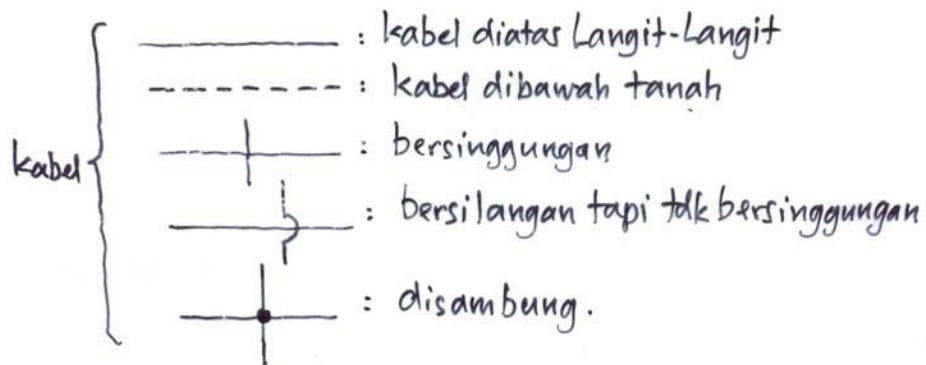 : kabel diatas Langit-Langit
: kabel dibawah tanah
kabel
: bersinggungan
: bersilangan tapi tdk bersinggungan
: disambung.